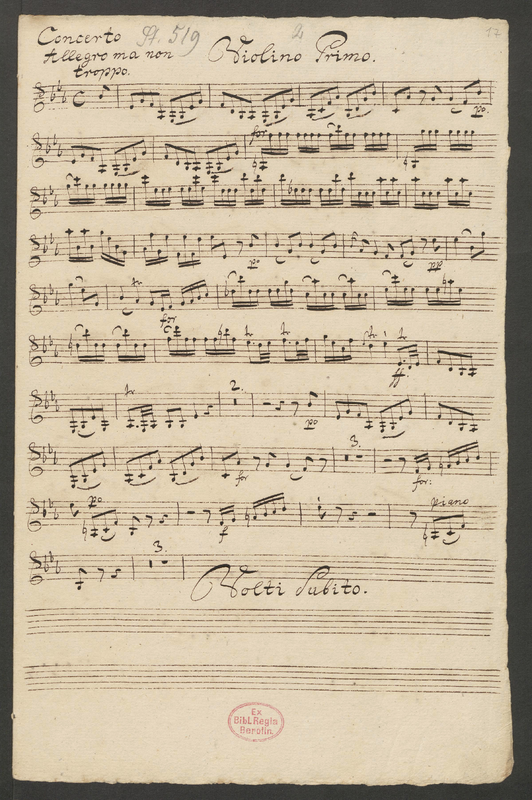 Concerto St. 519 2 17
Allegro ma non Violino Primo.
troppo.
po.
for
po pp
tr
for
tr tr tr tr
ff.
tr 2.
po
3.
for for:
po piano
f
3.
Volti Subito.
Ex
Bibl. Regia
Berolin.